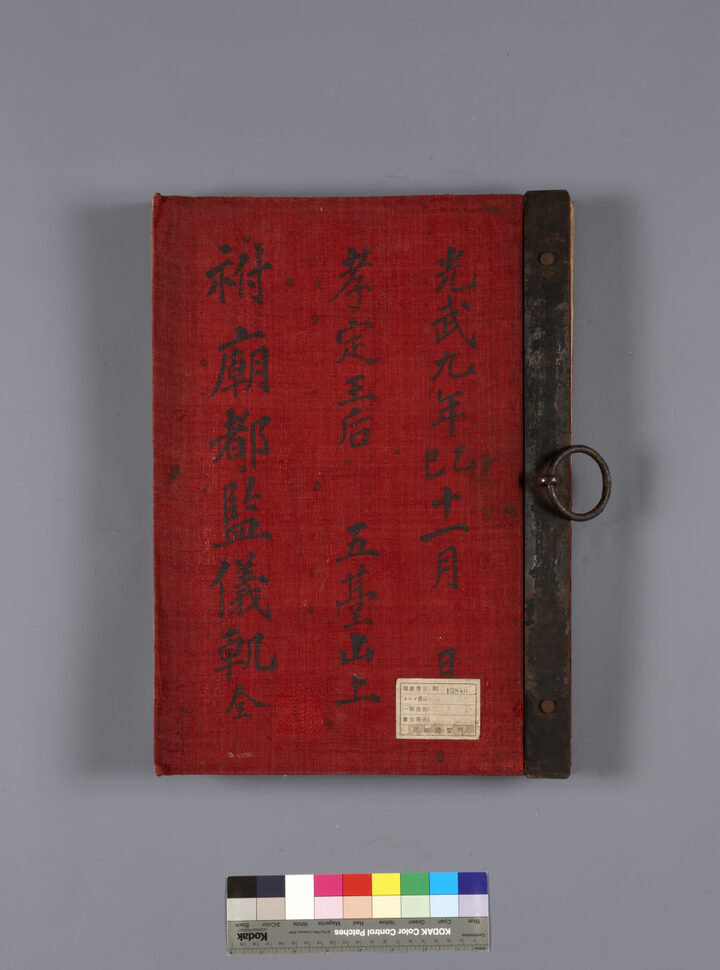 光武九年乙巳十一月 日
孝定王后 五臺山上
祔廟都監儀軌 全
13840
KODAK Color Control Patches
Kodak
Blue Cyan Green Yellow Red Magenta White 3/Color Black
Centimetres